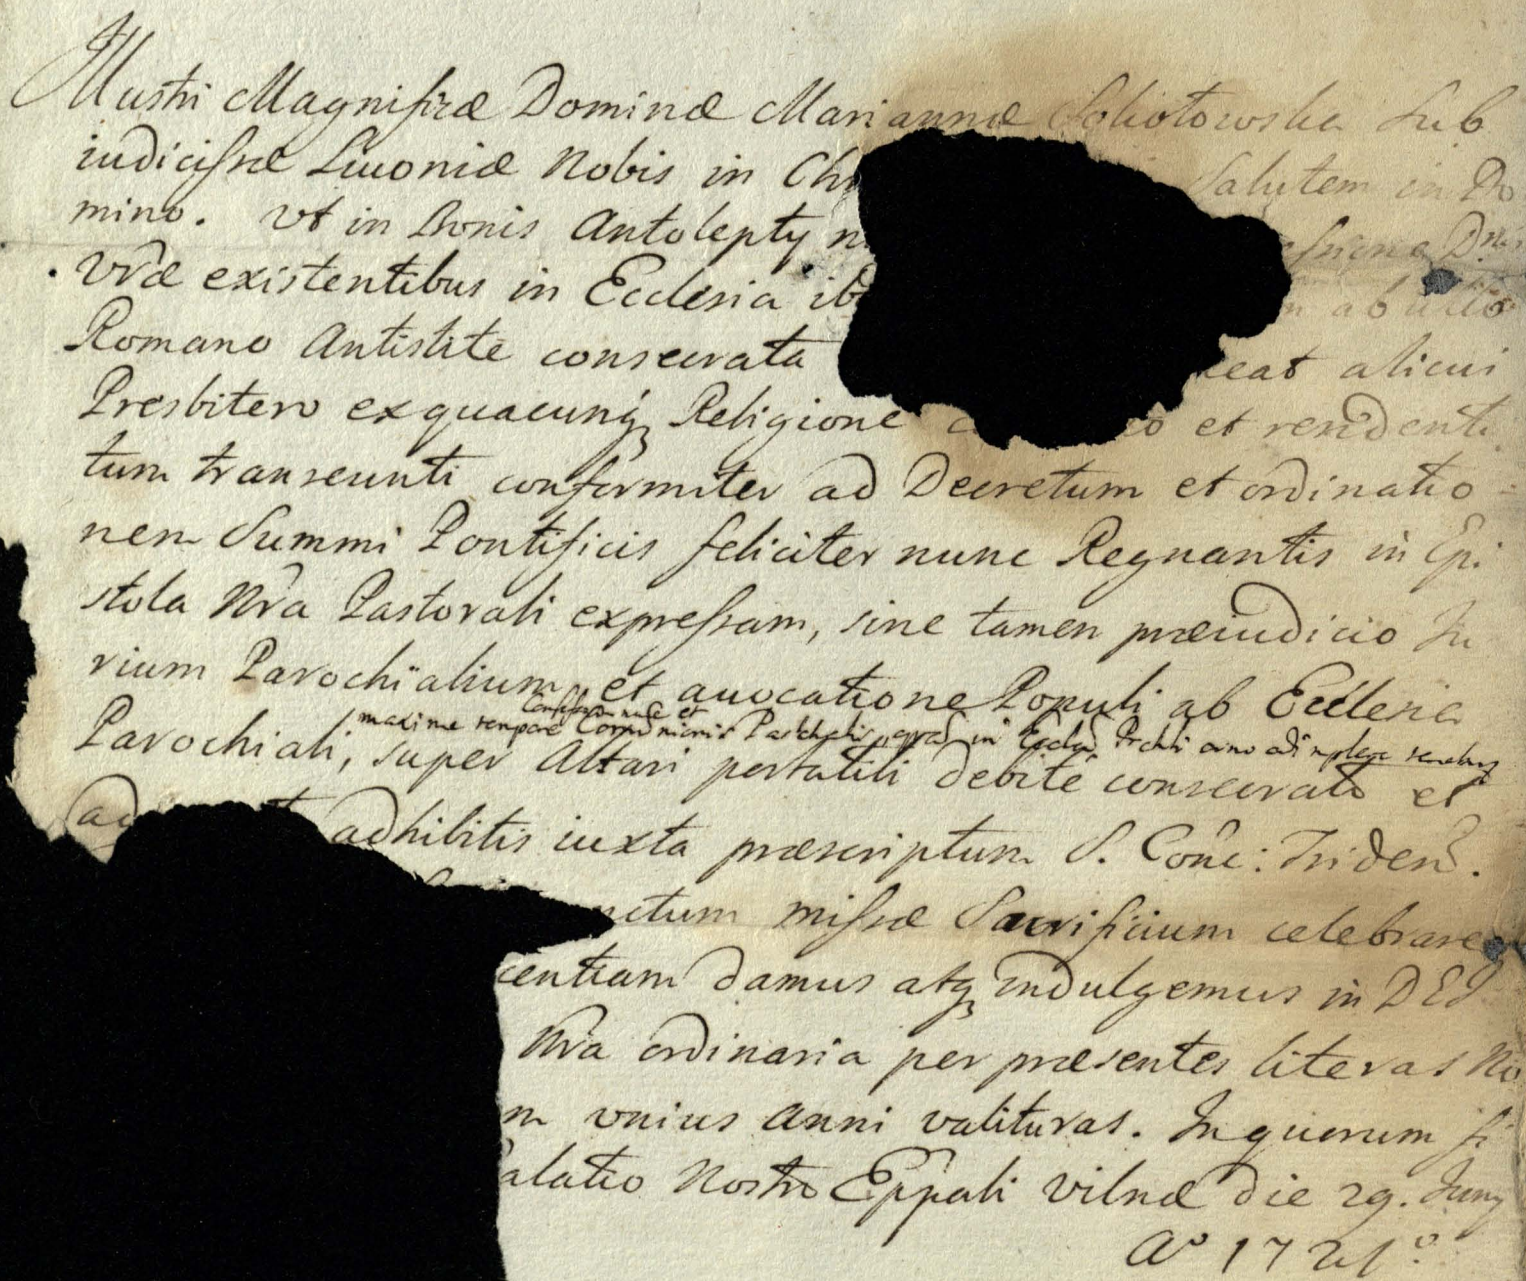 Illustri Magnificæ Dominæ Mariannæ Sokołowska Sub
iudicissæ Livoniæ Nobis in Chr Salutem in Do
mino. Vt in Bonis Antolepty
Vræ existentibus in Ecclesia ib
Romano Antistite consecrata eat alicui
Presbitero exquacunq Religione et residenti
tum transeunti conformiter ad Decretum et ordinatio=
nem Summi Pontificis feliciter nunc Regnantis in Epi
stola Nra Pastorali expressam, sine tamen præiudicio Iu
rium Parochialium, et auocatione Populi ab Ecclesia
maxime tempore Communionis Paschalis, in
Parochiali, super Altari portatili debite consecrato et
adhibitis iuxta præscriptum S. Conc: Triden.
nctum missæ Sacrificium celebrare
centiam damus atq indulgemus in DEI
Nra ordinaria per præsentes literas No
m vnius Anni valituras. In quorum fi
alatio Nostro Eppali Vilnæ die 29. Iuny